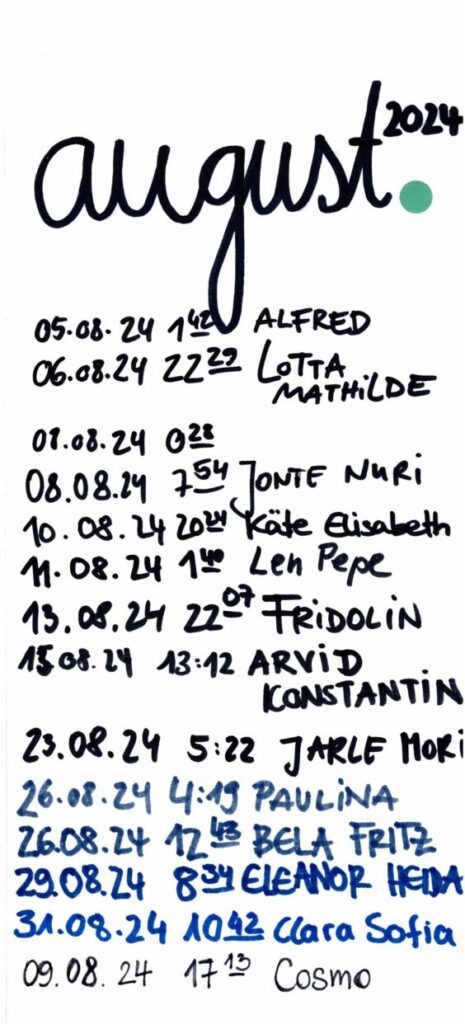 august. 2024
05.08.24 1 42 ALFRED
06.08.24 22 29 LOTTA
MATHILDE
07.08.24 0 28
08.08.24 7 54 JONTE NURI
10.08.24 20 24 Käte Elisabeth
11.08.24 1 40 Len Pepe
13.08.24 22 07 FRIDOLIN
15.08.24 13:12 ARVID
KONSTANTIN
23.08.24 5:22 JARLE MORI
26.08.24 4:19 PAULINA
26.08.24 12 43 BELA FRITZ
29.08.24 8 34 ELEANOR
31.08.24 10 42 Clara Sofia
09.08.24 17 13 Cosmo